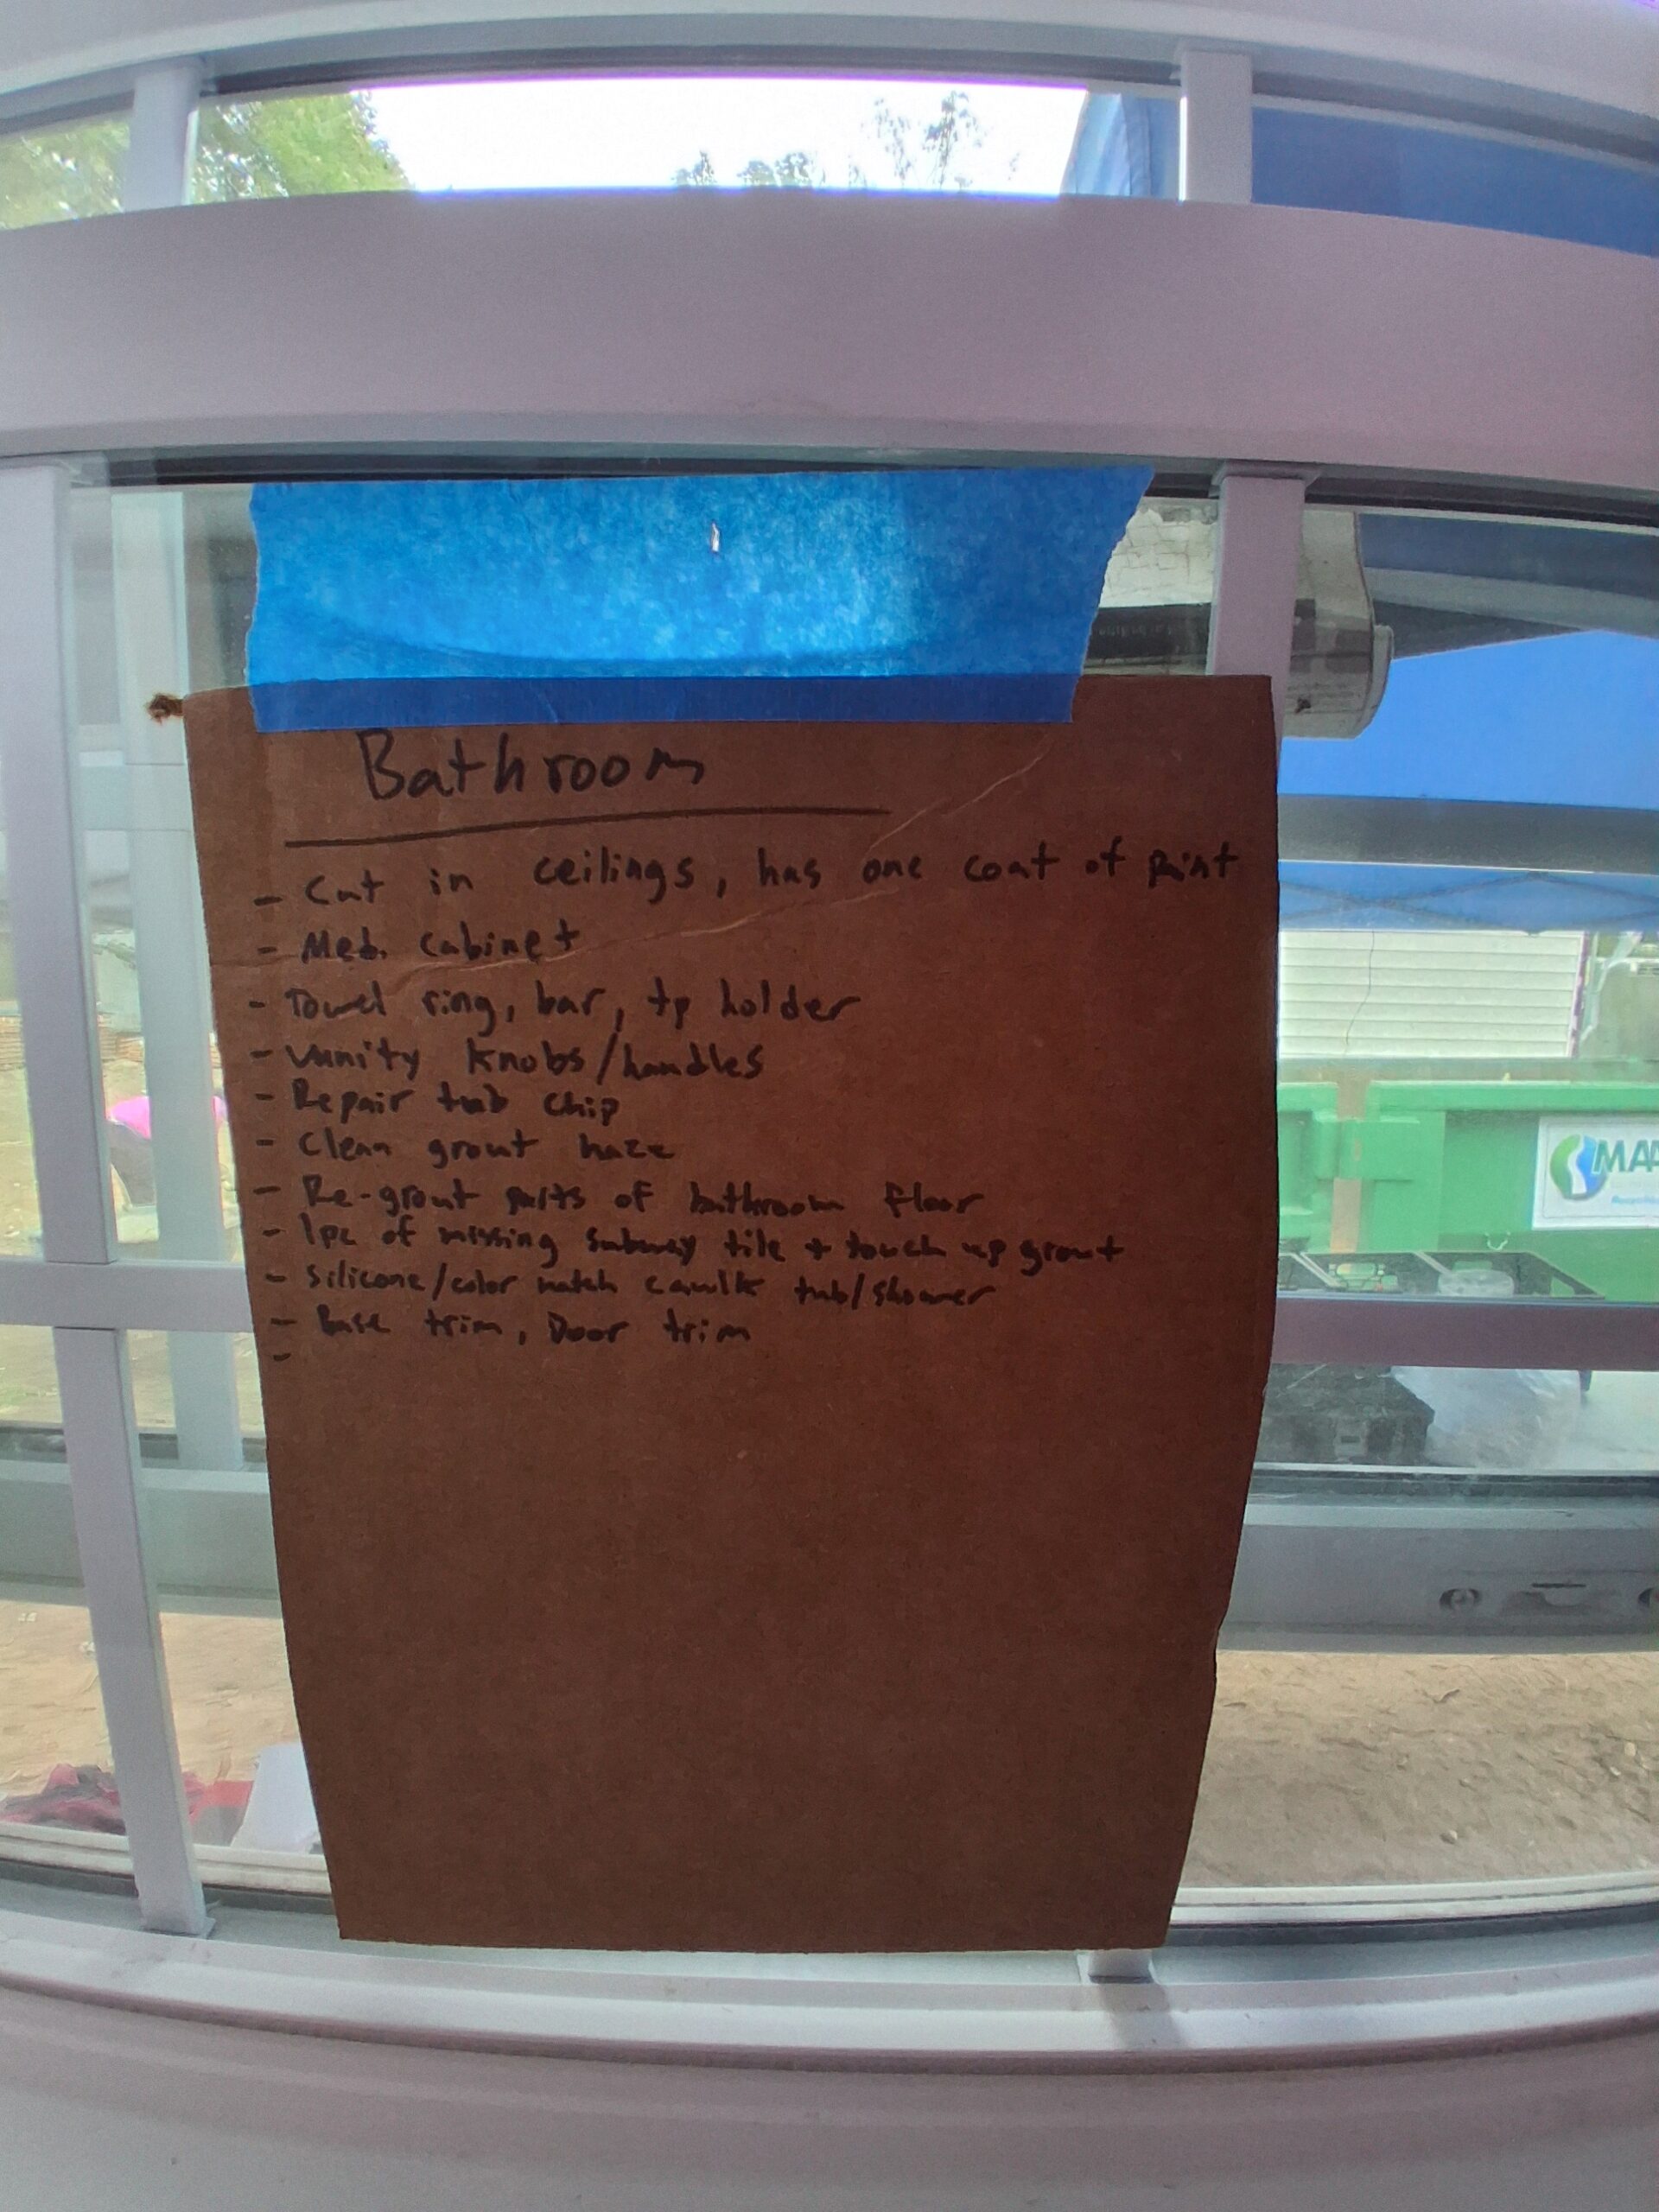 Bathroom
- Cut in ceilings, has one coat of paint
- Med. cabinet
- Towel ring, bar, tp holder
- Vanity knobs/handles
- Repair tub chip
- Clean grout haze
- Re-grout parts of bathroom floor
- 1pc of missing subway tile + touch up grout
- Silicone/color match caulk tub/shower
- Base trim, Door trim
-
MAA